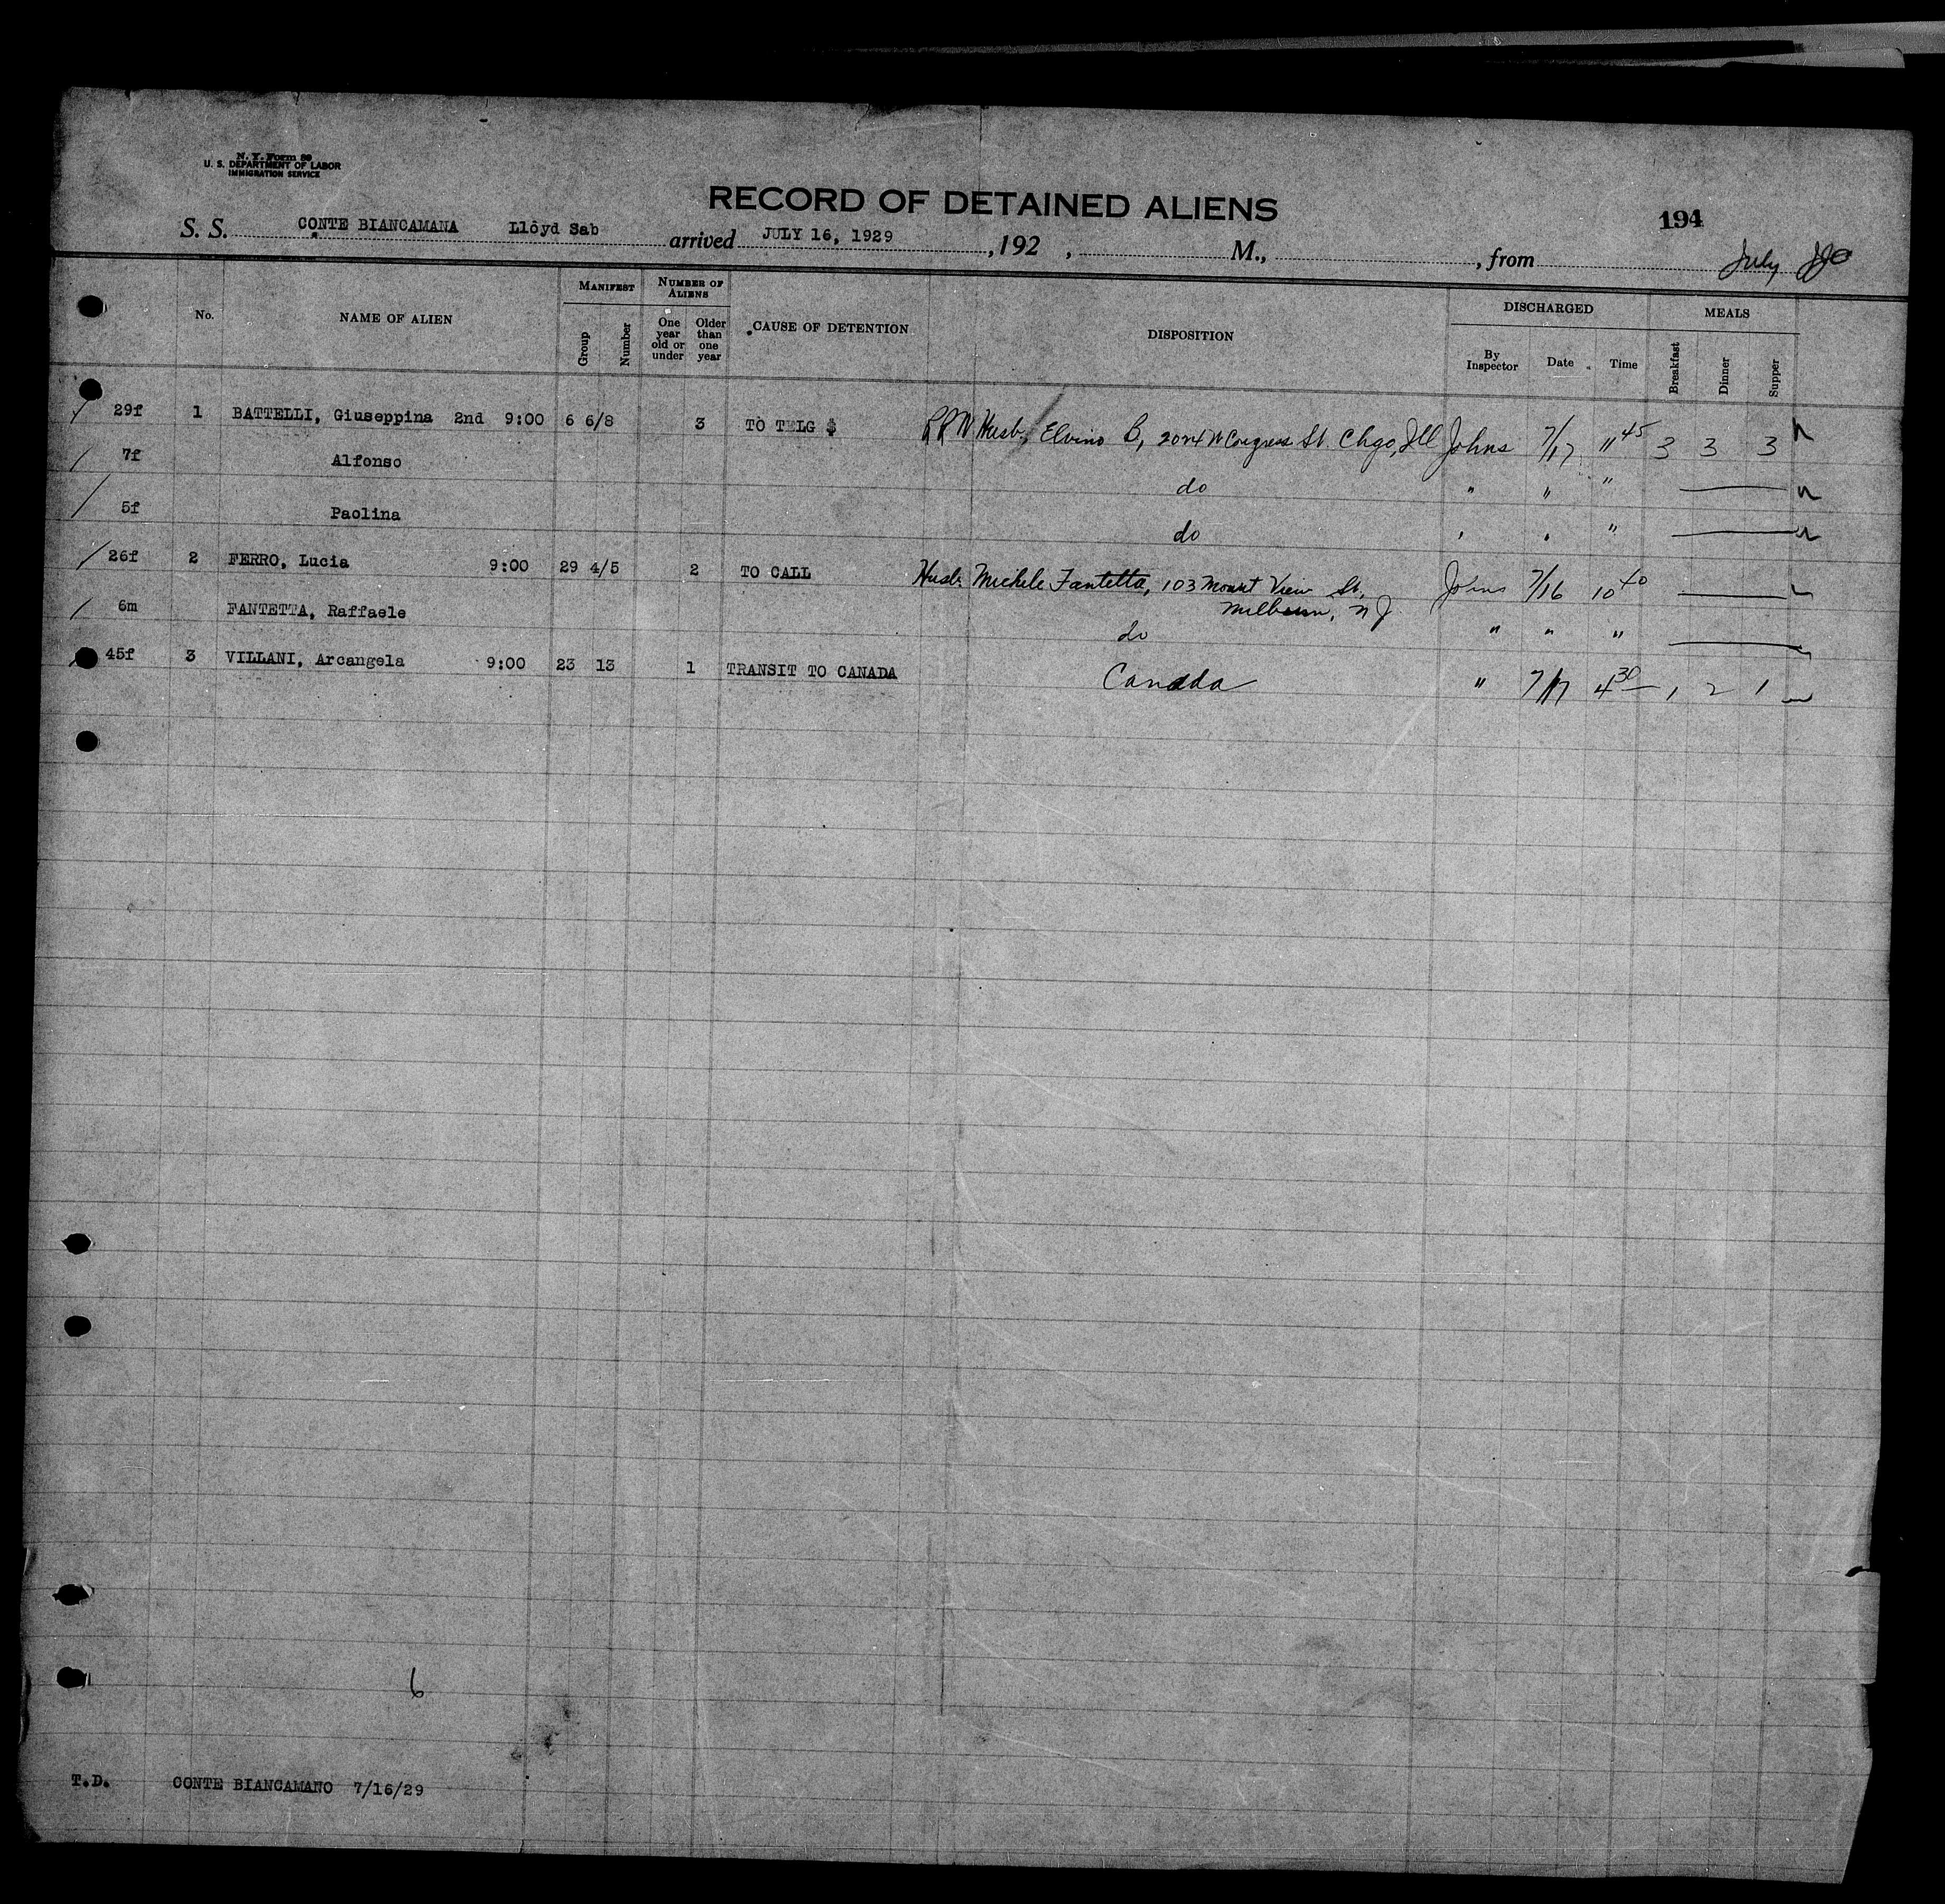 N. Y. Form 89
U. S. DEPARTMENT OF LABOR
IMMIGRATION SERVICE
RECORD OF DETAINED ALIENS
194
S. S. CONTE BIANCAMANA Lloyd Sab arrived JULY 16, 1929 , 192 , M., , from July
No. NAME OF ALIEN MANIFEST Group Number NUMBER OF ALIENS One year old or under Older than one year CAUSE OF DETENTION DISPOSITION DISCHARGED By Inspector Date Time MEALS Breakfast Dinner Supper
29f 1 BATTELLI, Giuseppina 2nd 9:00 6 6/8 3 TO TELG $ Husb, Elvino B, W Congress St. Chgo, Ill Johns 7/17 11 45 3 3 3
7f Alfonso do " " "
5f Paolina do " " "
26f 2 FERRO, Lucia 9:00 29 4/5 2 TO CALL Husb. Michele Fantetta, 103 Mount View St, Johns 7/16 10 40
Milburn, N J
6m FANTETTA, Raffaele do " " "
45f 3 VILLANI, Arcangela 9:00 23 13 1 TRANSIT TO CANADA Canada " 7/17 4 30 1 2 1
6
T.D. CONTE BIANCAMANO 7/16/29